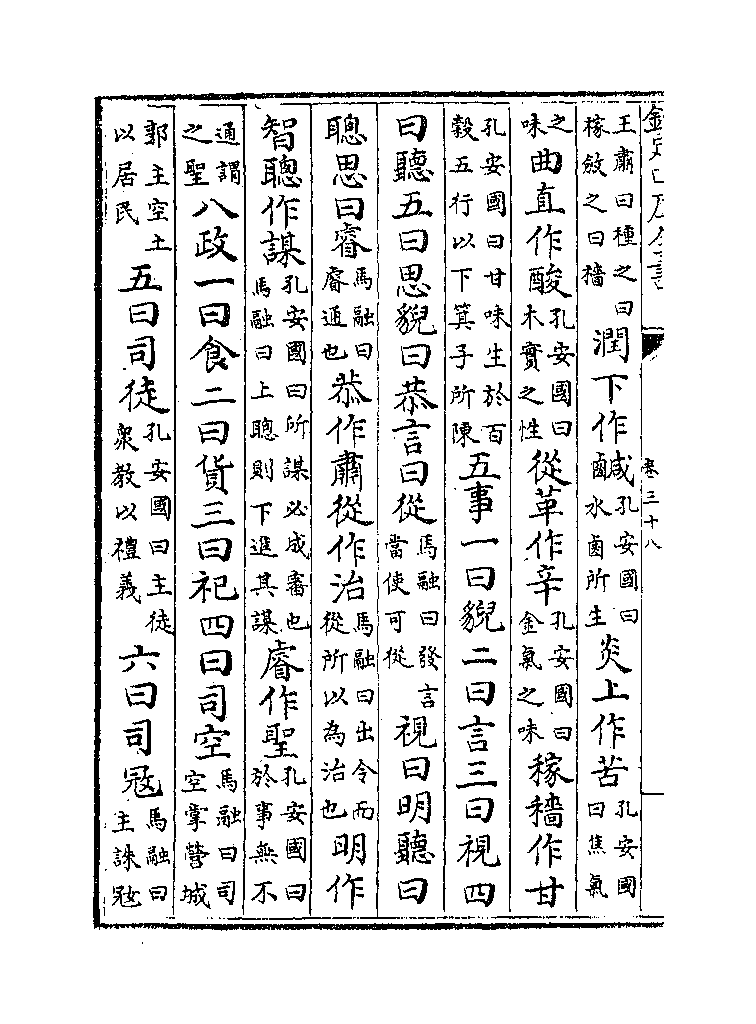 欽定四庫全書 卷三十八
王肅曰種之曰稼斂之曰穡潤下作鹹孔安國曰水鹵所生炎上作苦孔安國曰焦氣
之味曲直作酸孔安國曰木實之性從革作辛孔安國曰金氣之味稼穡作甘
孔安國曰甘味生於百穀五行以下箕子所陳五事一曰貌二曰言三曰視四
曰聽五曰思貌曰恭言曰從馬融曰發言當使可從視曰明聽曰
聰思曰睿馬融曰睿通也恭作肅從作治馬融曰出令而從所以為治也明作
智聰作謀孔安國曰所謀必成審也馬融曰上聰則下進其謀睿作聖孔安國曰於事無不
通謂之聖八政一曰食二曰貨三曰祀四曰司空馬融曰司空掌營城
郭主空土以居民五曰司徒孔安國曰主徒衆教以禮義六曰司寇馬融曰主誅寇